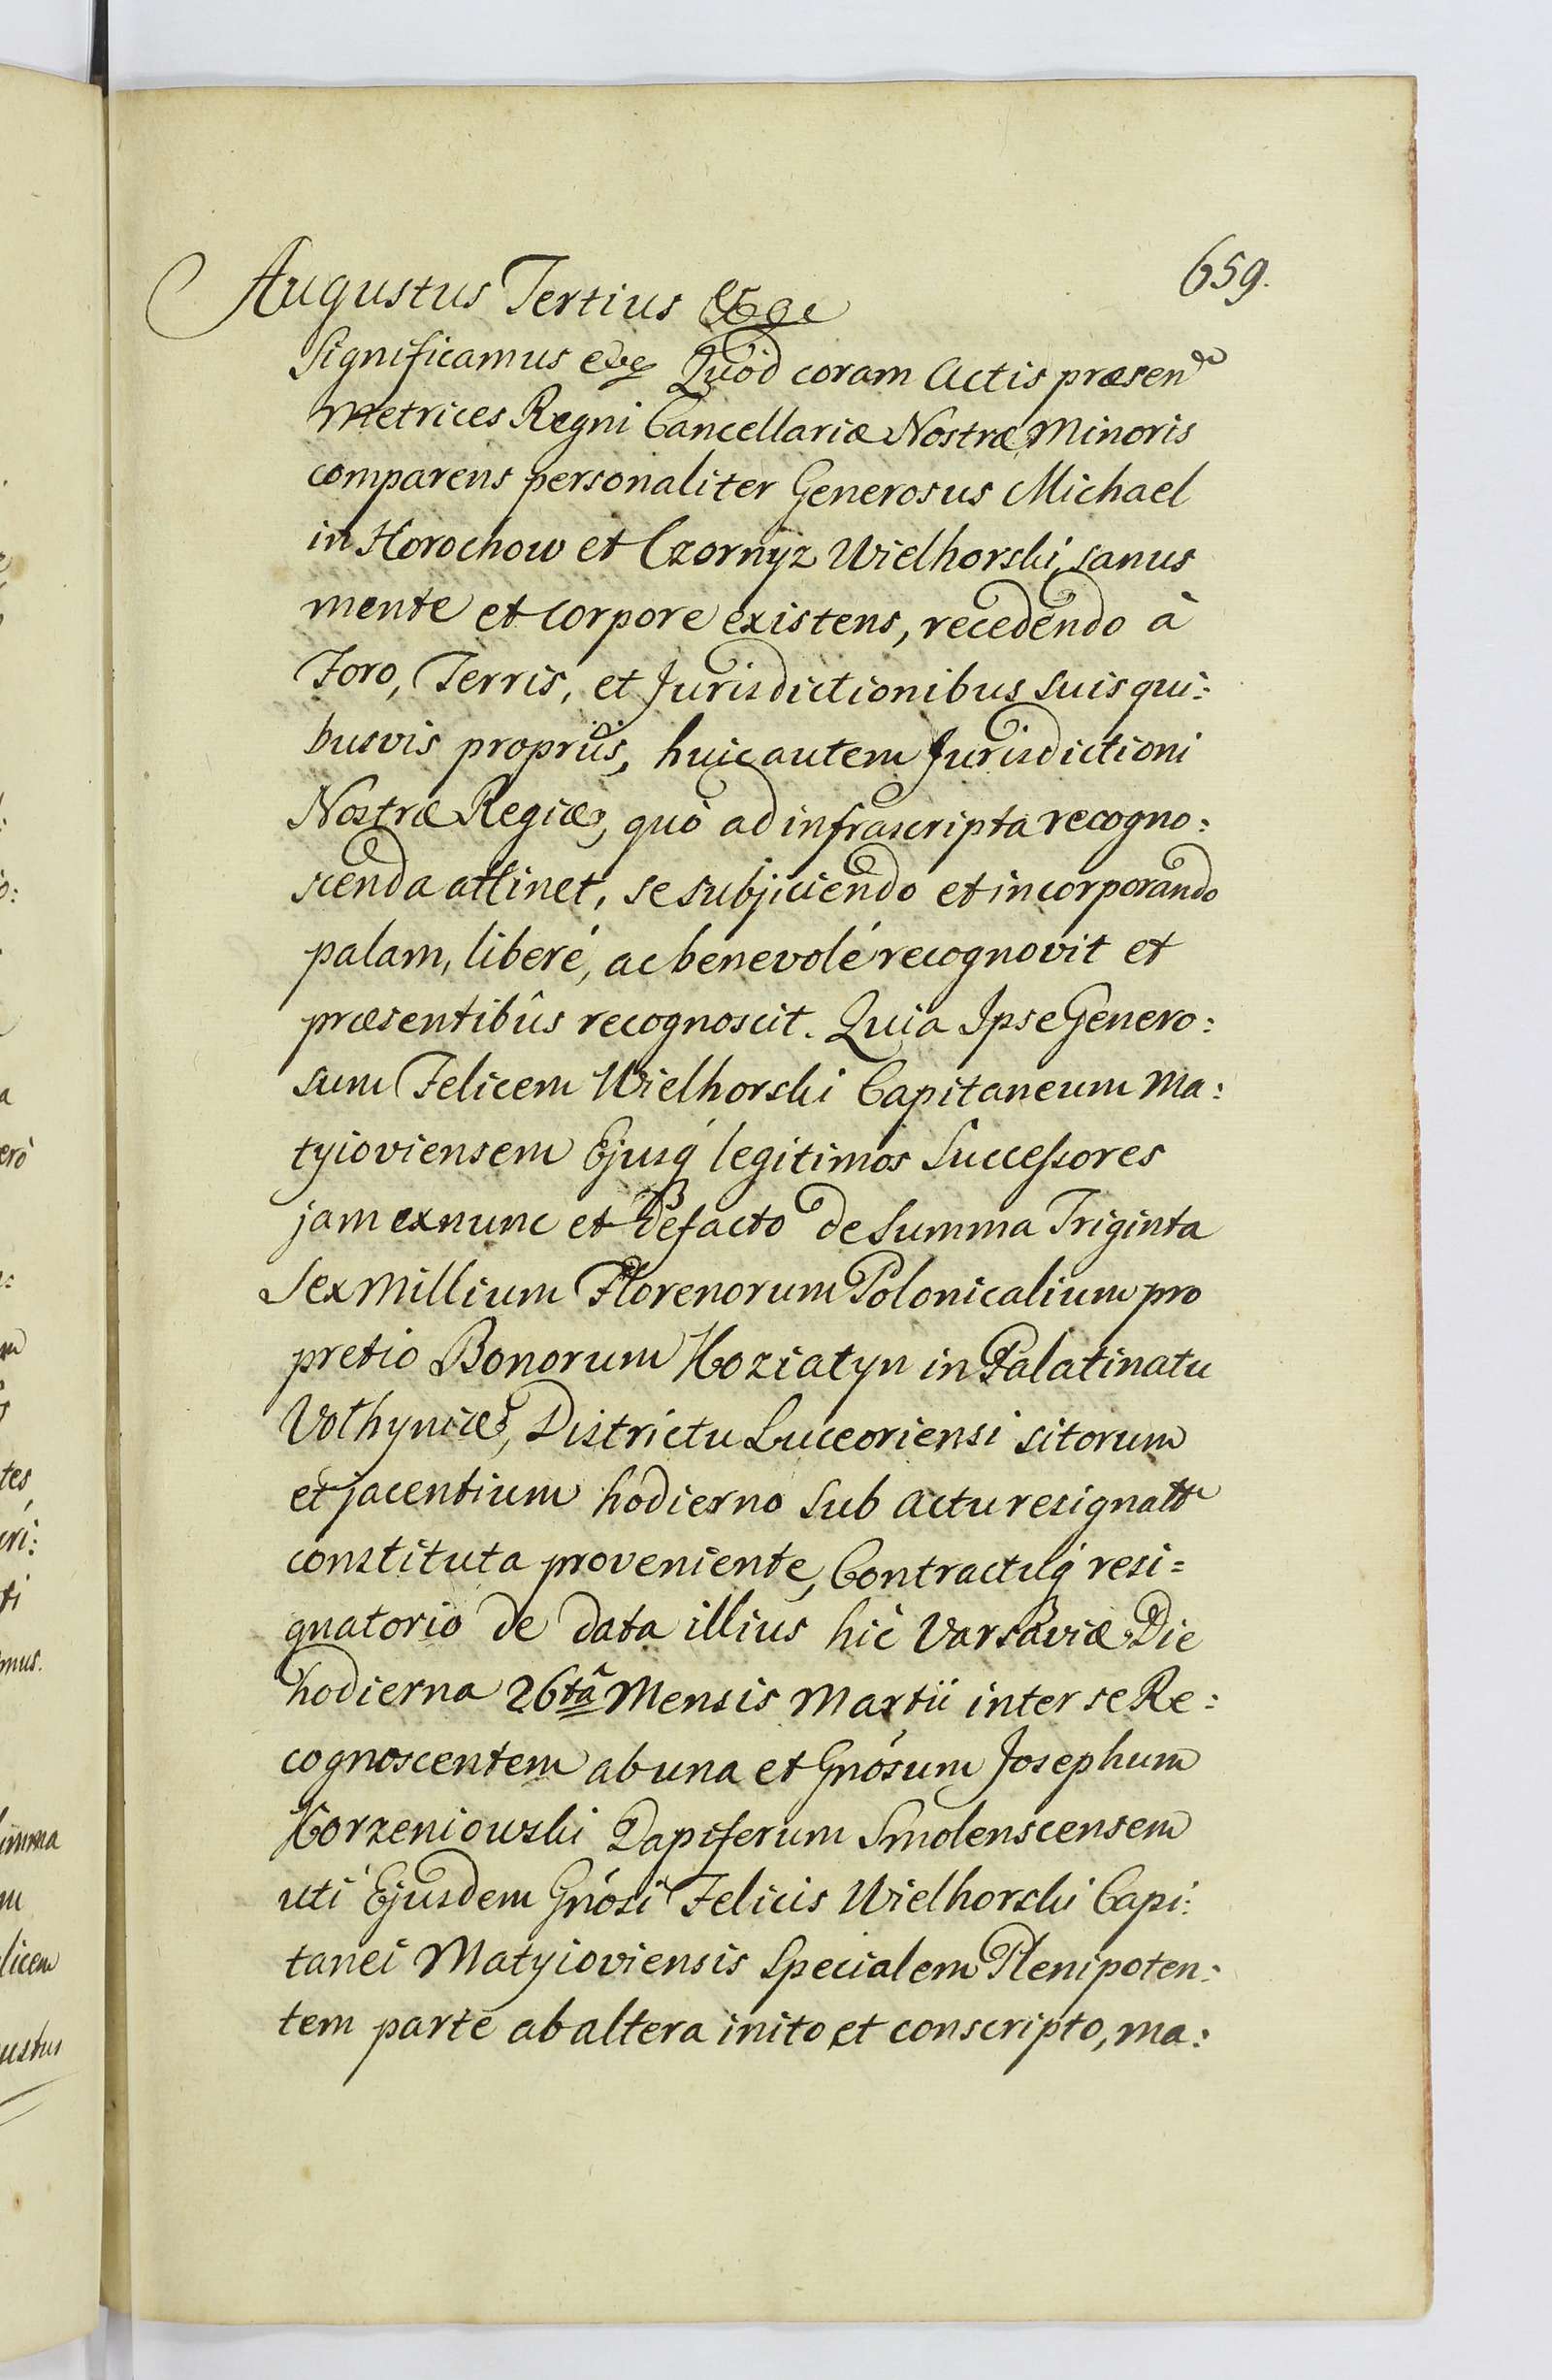 659.
Augustus Tertius &c
Significamus etc Quòd coram Actis præsen
Metrices Regni Cancellariæ Nostræ Minoris
comparens personaliter Generosus Michael
in Horochow et Czornyz Wielhorski, sanus
mente et corpore existens, recedendo à
Foro, Terris, et Jurisdictionibus suis qui:
busvis proprijs, huic autem Jurisdictioni
Nostræ Regiæ, quò ad infrascripta recogno:
scenda attinet, se subjiciendo et incorporando
palam, liberé, ac benevolé recognovit et
præsentibûs recognoscit. Quia Ipse Genero:
sum Felicem Wielhorski Capitaneum Ma:
tyioviensem Ejusq́ legitimos Successores
jam exnunc et defacto de Summa Triginta
Sex Millium Florenorum Polonicalium pro
pretio Bonorum Koziatyn in Palatinatu
Volhyniæ, Districtu Luceoriensi sitorum
et jacentium hodierno sub actu resignatt
constituta proveniente, Contractuq́ resi=
gnatorio de data illius hic Varsaviæ Die
hodierna 26tâ Mensis Martii inter se Re:
cognoscentem ab una et Gnósum Josephum
Korzeniowski Dapiferum Smolenscensem
uti Ejusdem Gnósi Felicis Wielhorski Capi:
tanei Matyioviensis Specialem Plenipoten:
tem parte ab altera inito et conscripto, ma: